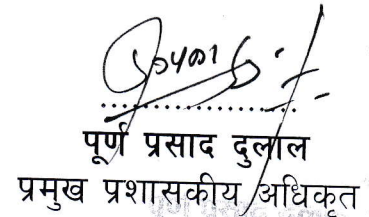 ..............................
पूर्ण प्रसाद दुलाल
प्रमुख प्रशासकीय अधिकृत